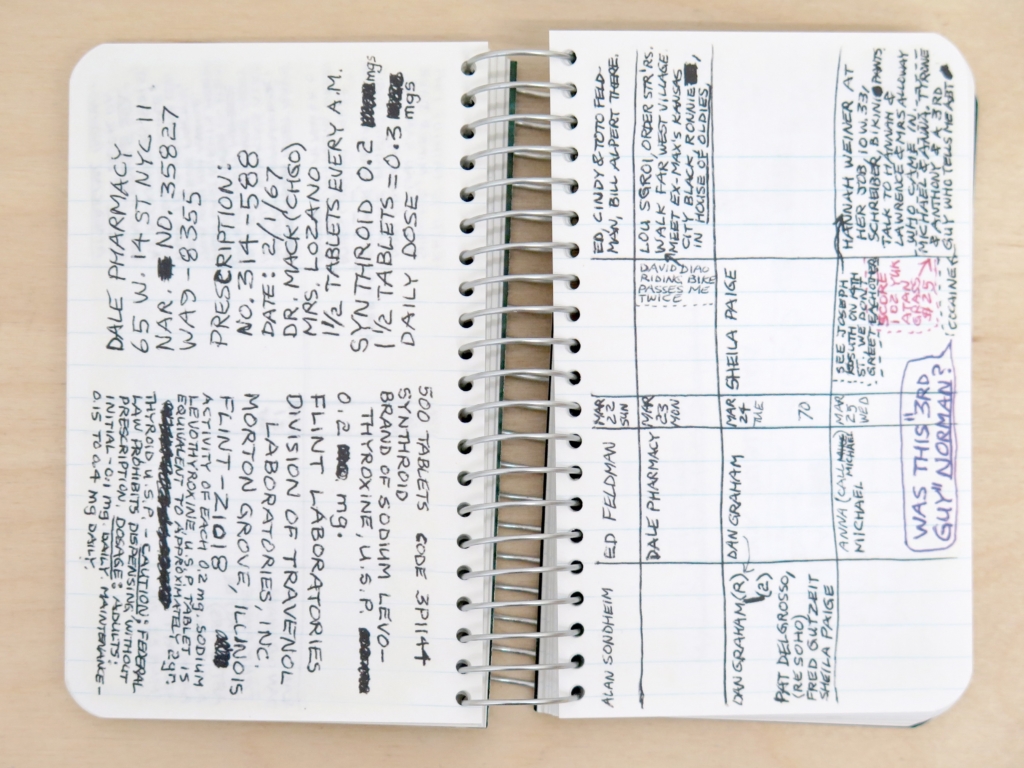 DALE PHARMACY
65 W. 14 ST NYC 11
NAR. NO. 35827
WA9-8355
PRESCRIPTION:
NO. 314-588
DATE: 2/1/67
DR. MACK (CHGO)
MRS. LOZANO
1 1/2 TABLETS EVERY A.M.
SYNTHROID 0.2 mgs
1 1/2 TABLETS = 0.3 mgs
DAILY DOSE
500 TABLETS CODE 3P1144
SYNTHROID
BRAND OF SODIUM LEVO-
THYROXINE, U.S.P.
0.2 mg.
FLINT LABORATORIES
DIVISION OF TRAVENOL
LABORATORIES, INC.
MORTON GROVE, ILLINOIS
FLINT-Z1018
ACTIVITY OF EACH 0.2 mg. SODIUM
LEVOTHYROXINE, U.S.P. TABLET IS
EQUIVALENT TO APPROXIMATELY 2 gr.
THYROID U.S.P. - CAUTION: FEDERAL
LAW PROHIBITS DISPENSING WITHOUT
PRESCRIPTION. DOSAGE: ADULTS:
INITIAL-0.1 mg. DAILY. MAINTENANCE-
0.15 TO 0.4 MG DAILY.
ALAN SONDHEIM
ED FELDMAN
MAR
22
SUN
ED, CINDY & TOTO FELD-
MAN, BILL ALPERT THERE.
DALE PHARMACY
MAR
23
MON
DAVID DIAO
RIDING BIKE
PASSES ME
TWICE
LOU SGROI, ORDER STR'RS.
WALK FAR WEST VILLAGE
MEET EX-MAX'S KANSAS
CITY BLACK, RONNIE,
IN HOUSE OF OLDIES
DAN GRAHAM (R)
(2)
PAT DELGROSSO,
(RE SOHO)
FRED GUTZEIT
SHEILA PAIGE
DAN GRAHAM
MAR
24
TUE
70
SHEILA PAIGE
ANNA (CALL
MICHAEL
MICHAEL
MAR
25
WED
SEE JOSEPH
KOSUTH ON
ST. WE DON'T
GREET EACH OTHER
SCORE
1 OZ YUK
ATAN
GRASS
$125
HANNAH WEINER AT
HER JOB, 10 W. 33,
SCHREIBER, BIKINI PANTS.
TALK TO HANNAH &
LAWRENCE & MRS ALLOWAY
WHO CAME IN.
MICHAEL & ANNA, TYRONE
& ANTHONY & A 3RD
GUY WHO TELLS ME ABT
COCKINER
WAS THIS "3RD
GUY" NORMAN?